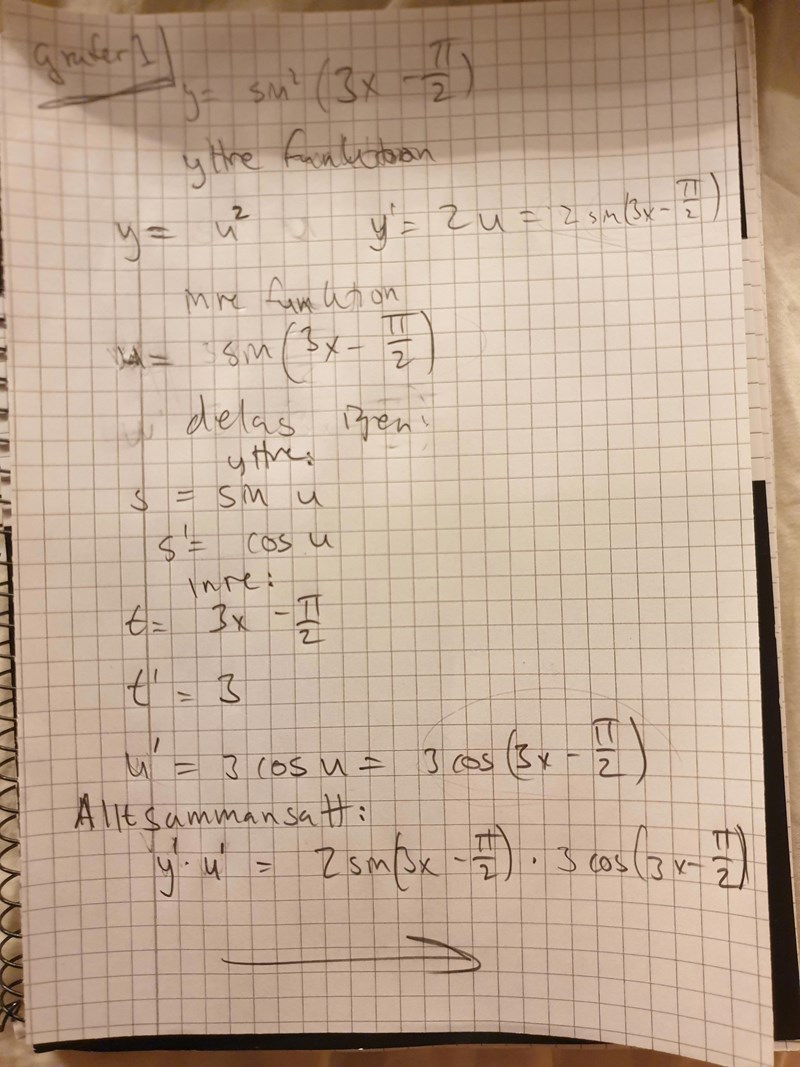 Grafer 1
y = sin² (3x - π/2)
yttre funktion
y = u² y' = 2u = 2 sin(3x - π/2)
inre funktion
u = sin(3x - π/2)
delas igen:
yttre:
s = sin u
s' = cos u
inre:
t = 3x - π/2
t' = 3
u' = 3 cos u = 3 cos(3x - π/2)
Allt sammansatt:
y' · u' = 2 sin(3x - π/2) · 3 cos(3x - π/2)